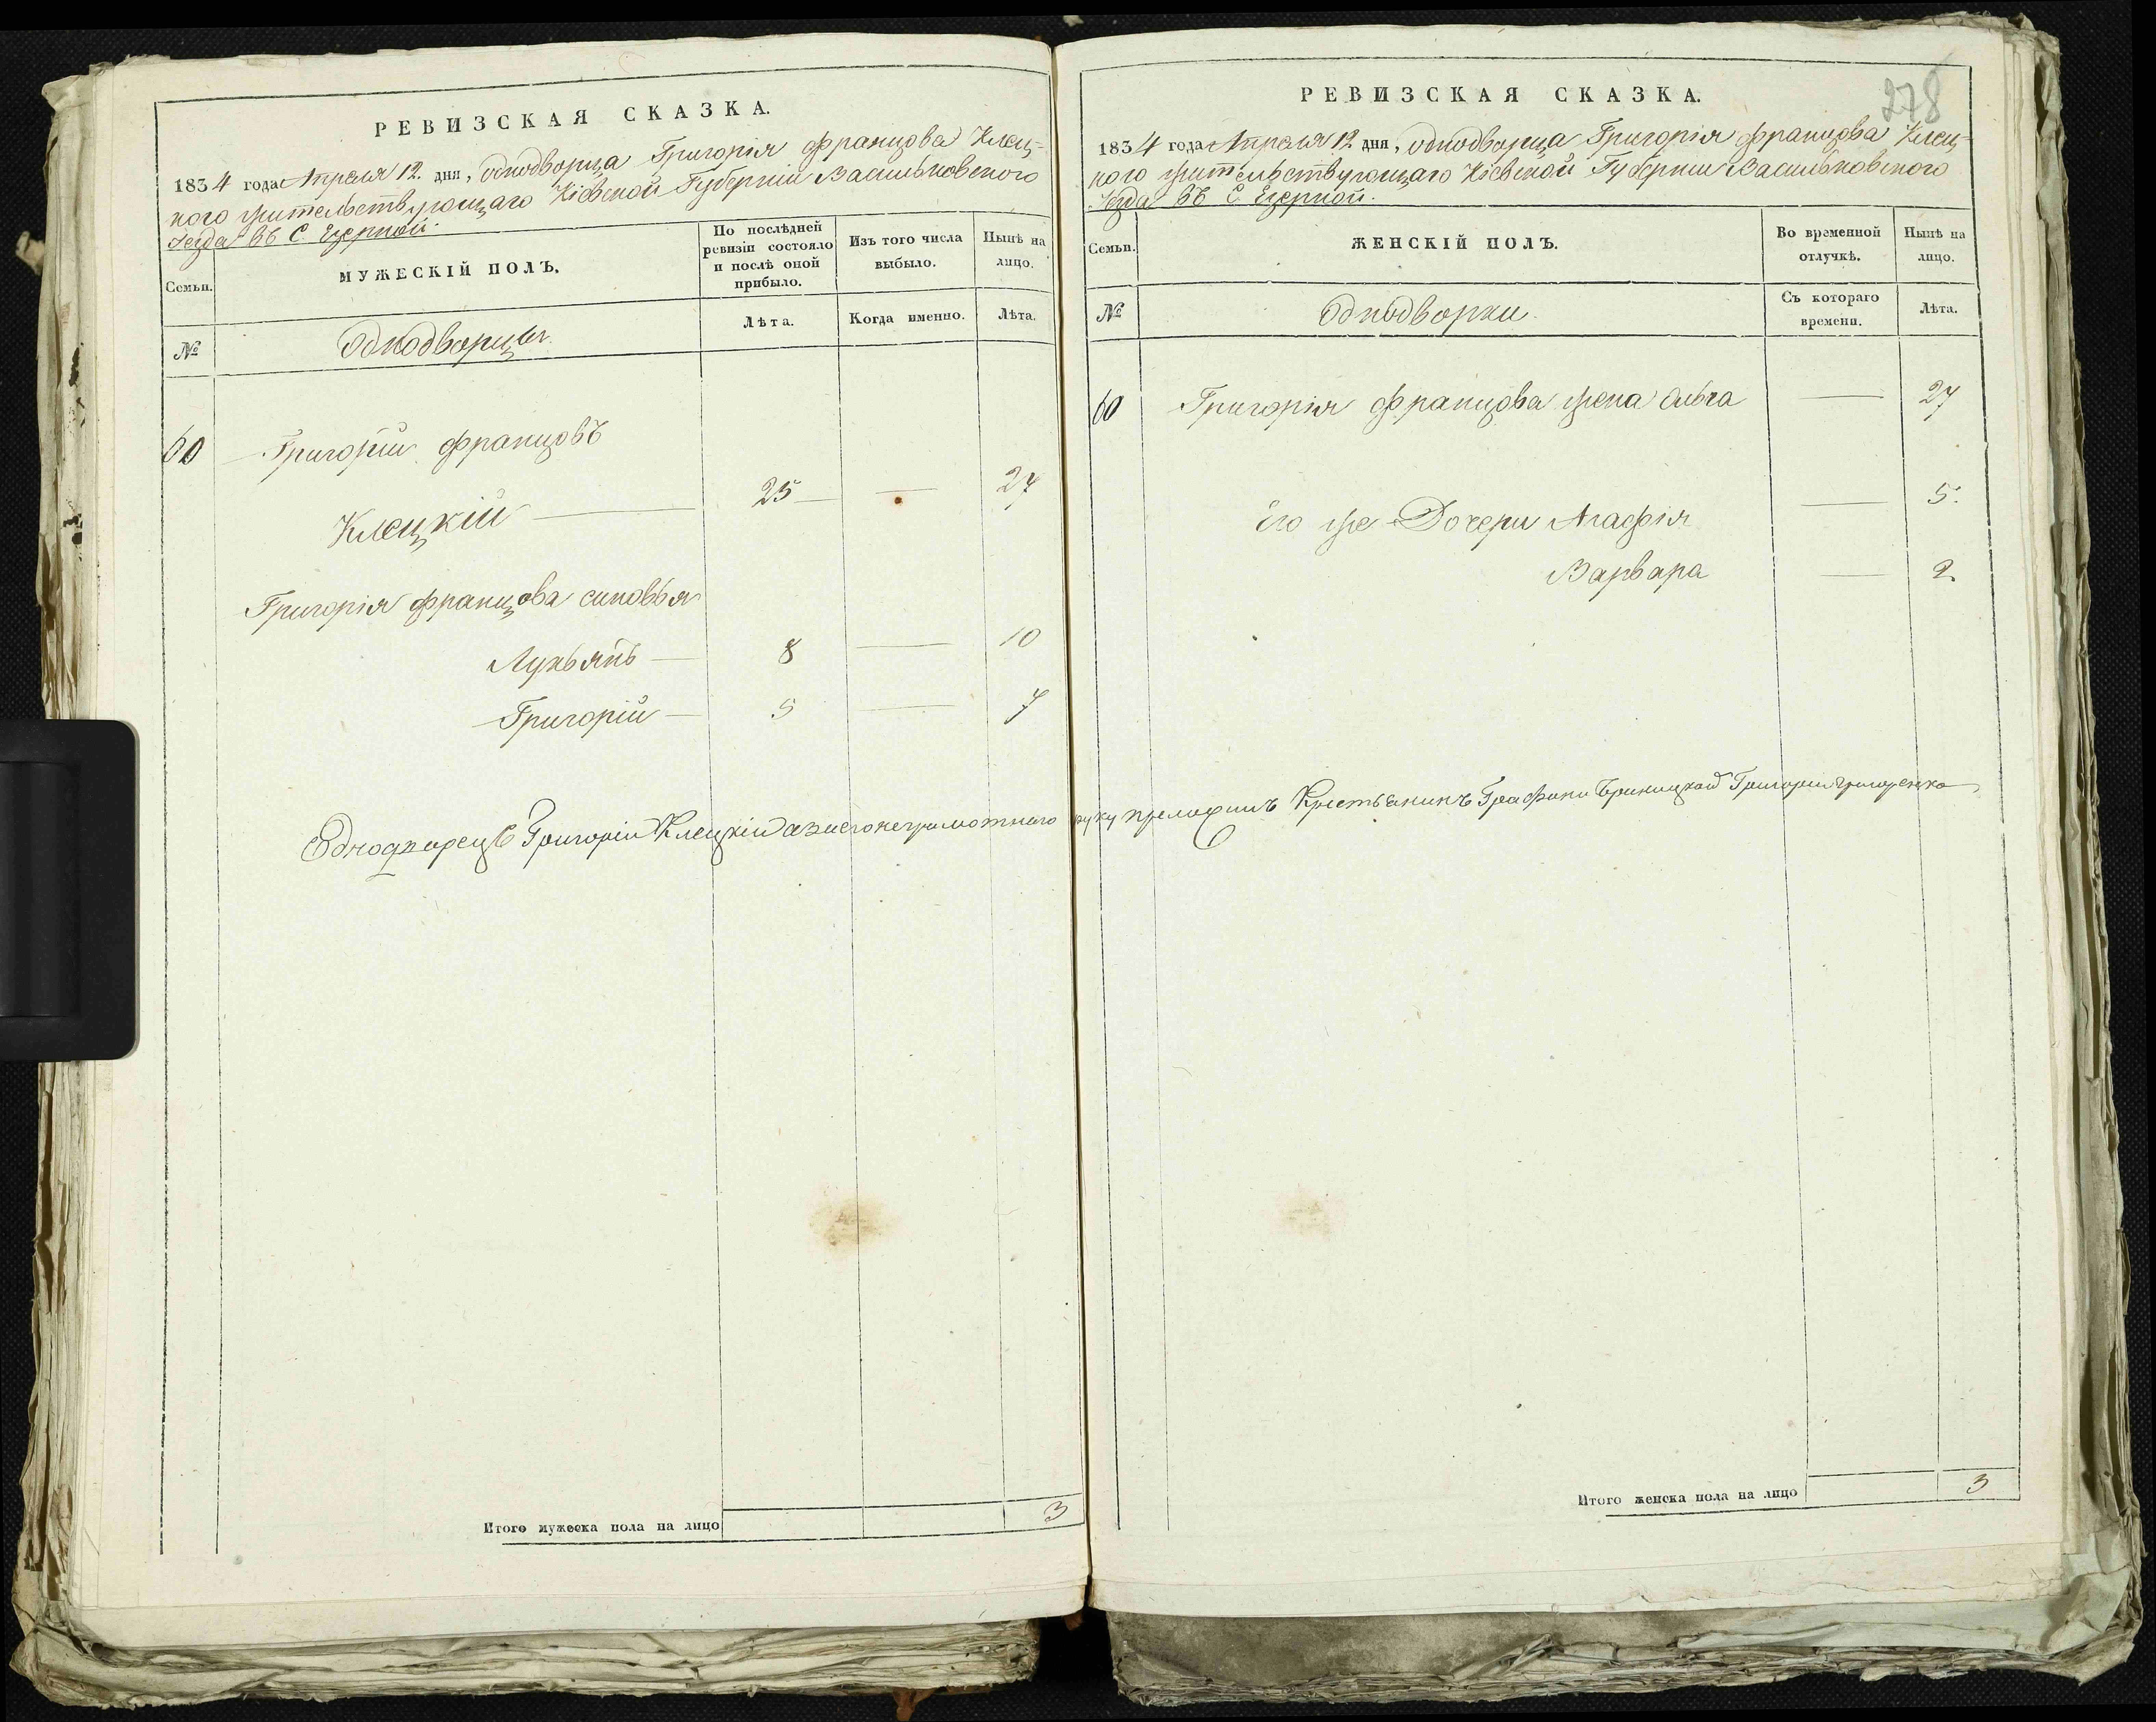 РЕВИЗСКАЯ СКАЗКА.
1834 года Апреля 12. дня, однодворца Григорія Францова Клец-
кого жительствующаго Кіевской Губерніи Васильковского
уезда въ С. Езерной.
Семьи.
МУЖЕСКІЙ ПОЛЪ.
По послѣдней ревизіи состояло и послѣ оной прибыло.
Изъ того числа выбыло.
Нынѣ на лицо.
№
Однодворцы.
Лѣта.
Когда именно.
Лѣта.
60 Григорій Францовъ
Клецкій — 25 — — 27
Григорія Францова синовья
Лукьянъ — 8 — 10
Григорій — 5 — 7
Однодворецъ Григорій Клецкій азаего неграмотного руку преложилъ Крестьянинъ Графини Браницкой Григорий Григоренко
Итого мужеска пола на лицо 3
278
РЕВИЗСКАЯ СКАЗКА.
1834 года Апреля 12 дня, однодворца Григорія Францова Клец-
кого жительствующаго Кіевской Губернии Васильковского
уезда въ С. Езерной.
Семьи.
ЖЕНСКІЙ ПОЛЪ.
Во временной отлучкѣ.
Нынѣ на лицо.
№
Однодворки.
Съ котораго времени.
Лѣта.
60 Григорія Францова жена Ольга — 27
Его же Дочери Агафія — 5.
Варвара — 2
Итого женска пола на лицо 3